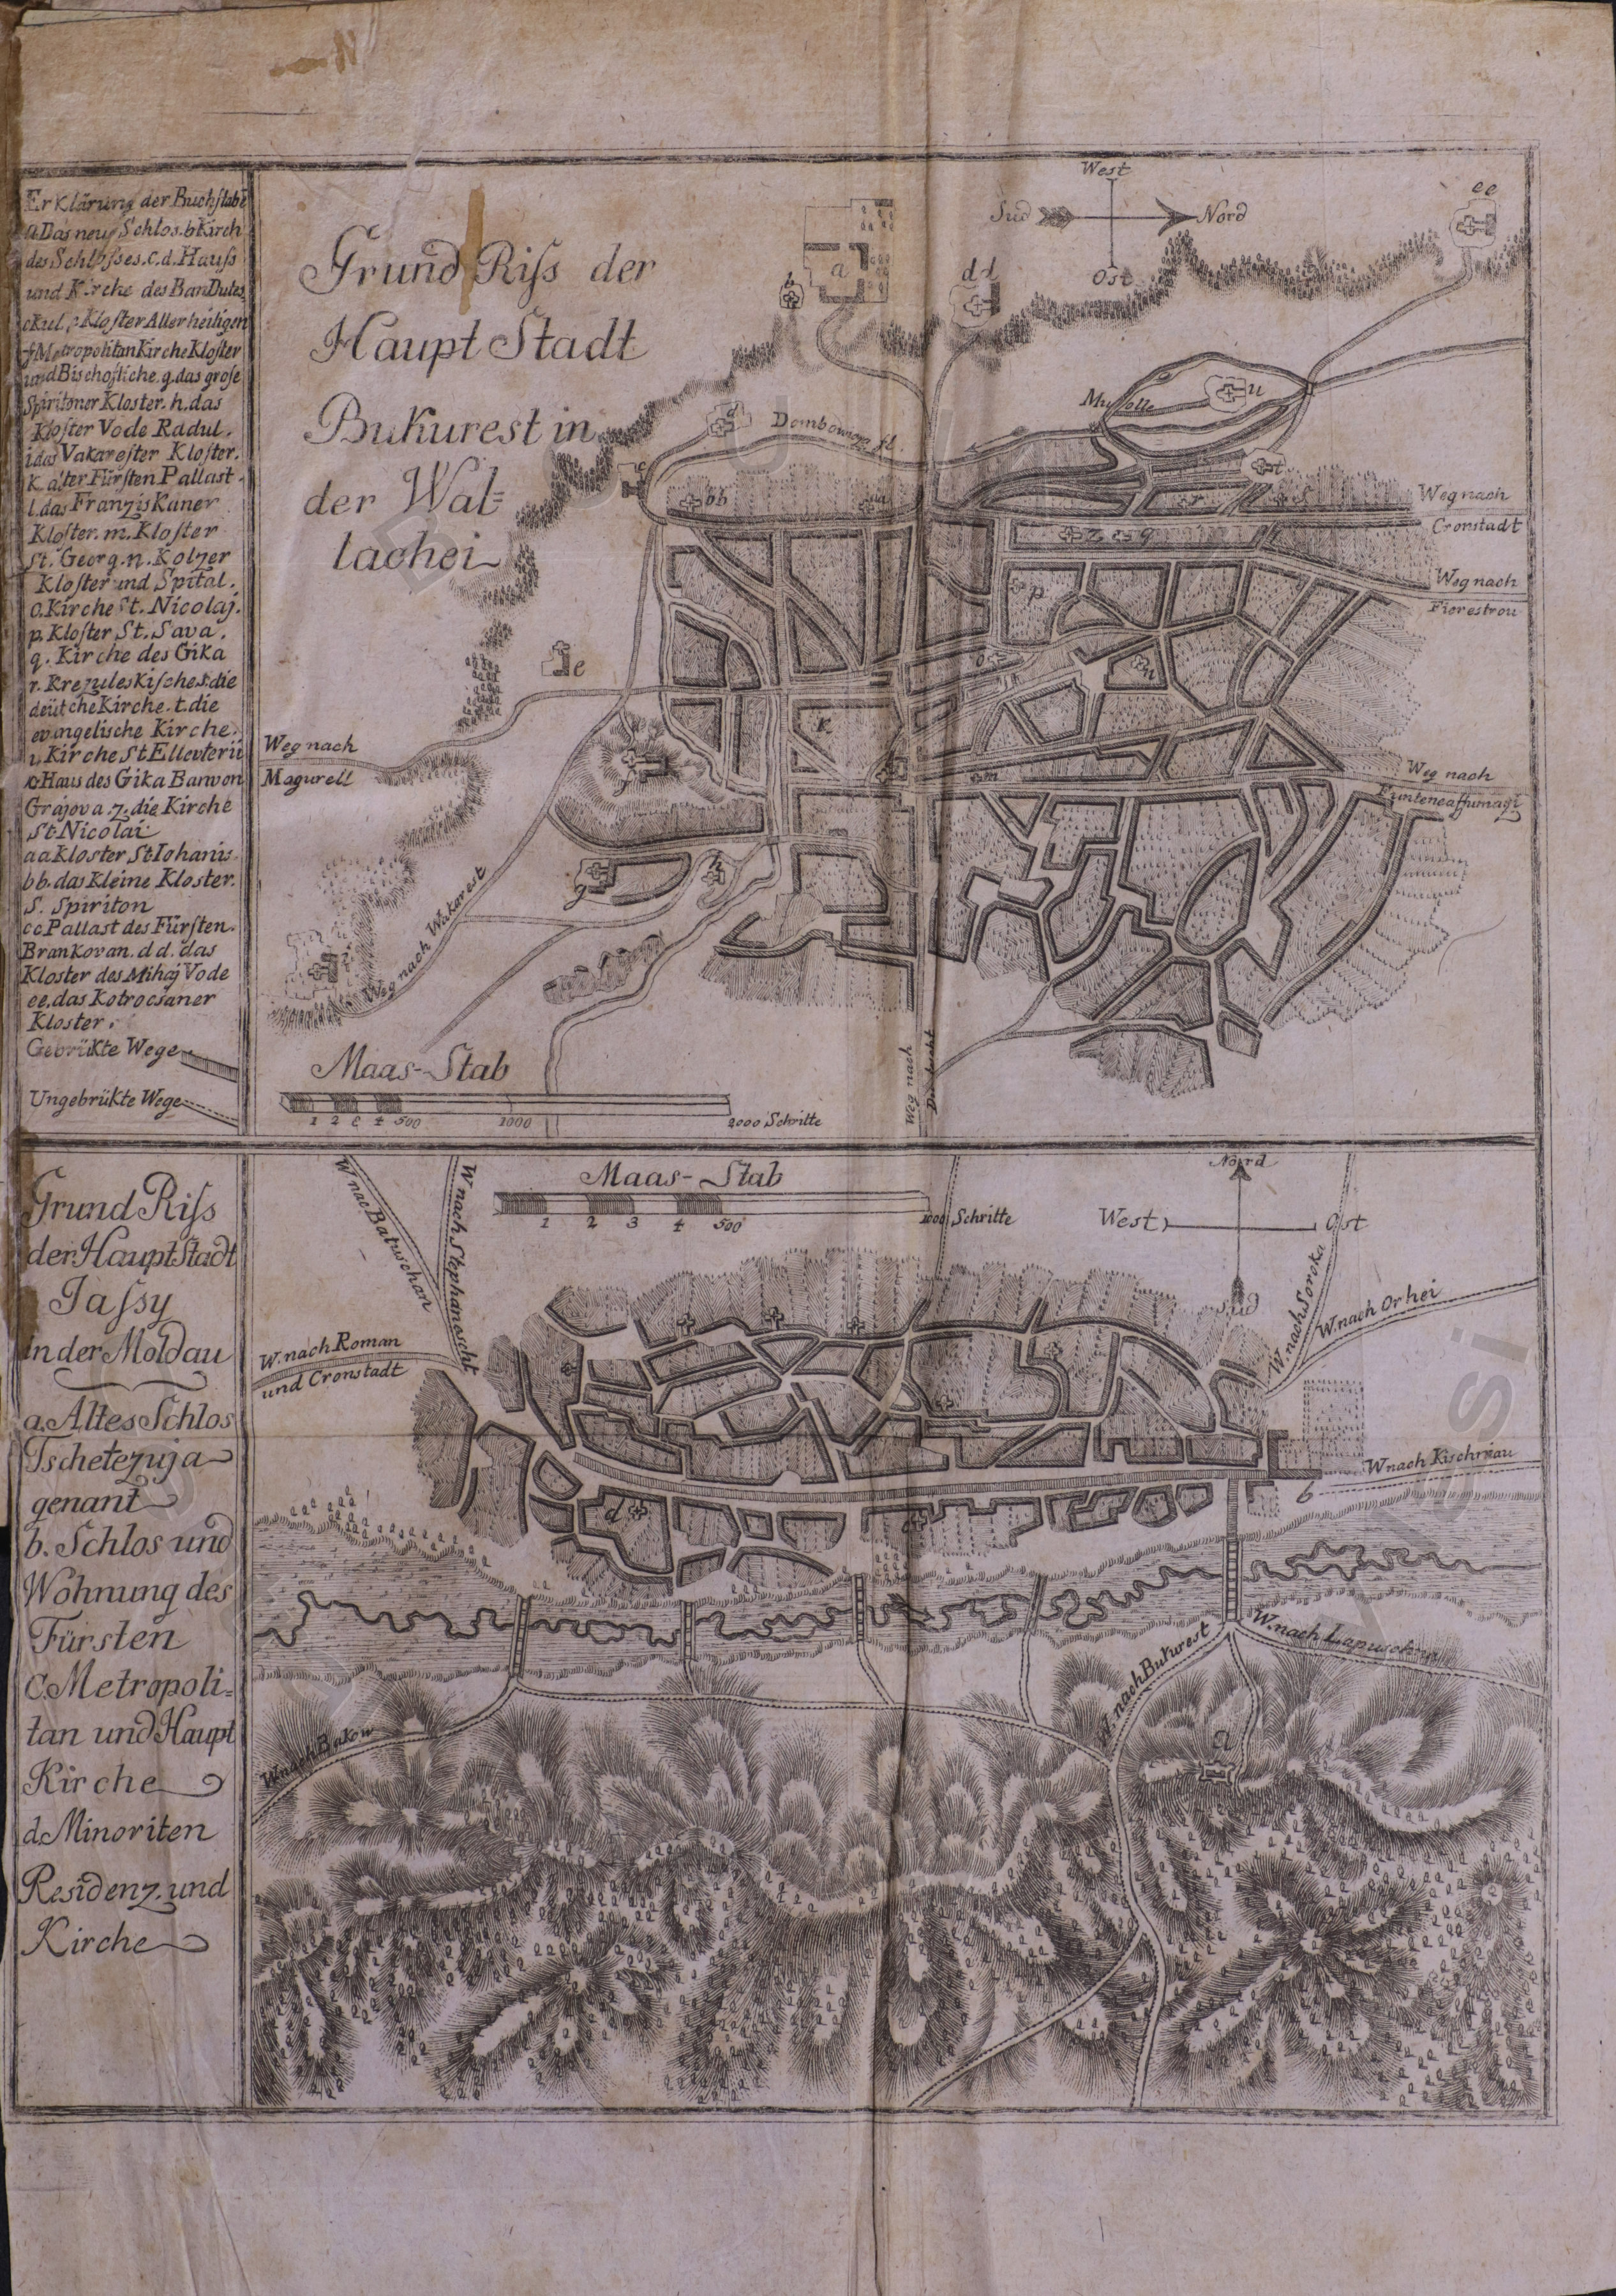 Erklärung der Buchstabē
a.Das neue Schlos.b.Kirch
des Schlosses.c.d.Hauss
und Kirche des Ban Dudes
Kloster Allerheiligen
f.Metropolitan Kirche Kloster
und Bischofliche.g.das grose
Spiritoner Kloster.h.das
Kloster Vode Radul.
i.das Vakarester Kloster.
K.alter Fürsten Pallast.
l.das Franziskaner
Kloster.m.Kloster
St. Georg.n.Kolzer
Kloster und Spital.
o.Kirche St.Nicolaj.
p.Kloster St.Sava.
q.Kirche des Gika
r.Krezuleskische.s.die
deütche Kirche.t.die
evangelische Kirche.
u.Kirche St Ellevterii
x.Haus des Gika Banvon
Grajova.z.die Kirche
St Nicolai
aa Kloster St Iohanis
bb.das Kleine Kloster.
S. Spiriton
cc Pallast des Fürsten
Brankovan.dd.das
Kloster des Mihaj Vode
ee.das Kotrocsaner
Kloster.
Gebrükte Wege
Ungebrükte Wege
Grund Riss der
Haupt Stadt
Bukurest in
der Wal=
lachei
West
Sud
Nord
Ost
ee
a
b
dd
d
c
Dombowiza fl.
u
t
bb
aa
r
s
z
q
p
o
n
K
e
f
l
m
g
h
i
Weg nach
Cronstadt
Weg nach
Fierestrou
Weg nach
Magurell
Weg nach
Funteneaffumagi
Weg nach Wakarest
Weg nach
Maas-Stab
1 2 3 4 500
1000
2000 Schritte
Grund Riss
der Hauptstadt
Jassy
in der Moldau
a.Altes Schlos
Tschetezuja
genant
b.Schlos und
Wohnung des
Fürsten
c.Metropoli=
tan und Haupt
Kirche
d.Minoriten
Residenz.und
Kirche
Maas-Stab
1 2 3 4 500
1000 Schritte
Nord
West
Ost
Sud
W nac Batuschan
W nach Stephanoscht
W.nach Roman
und Cronstadt
W.nach Soroka
W.nach Orhei
W nach Kischnau
b
d
W.nach Bukurest
W.nach Lapuschna
W nach Bakow
a